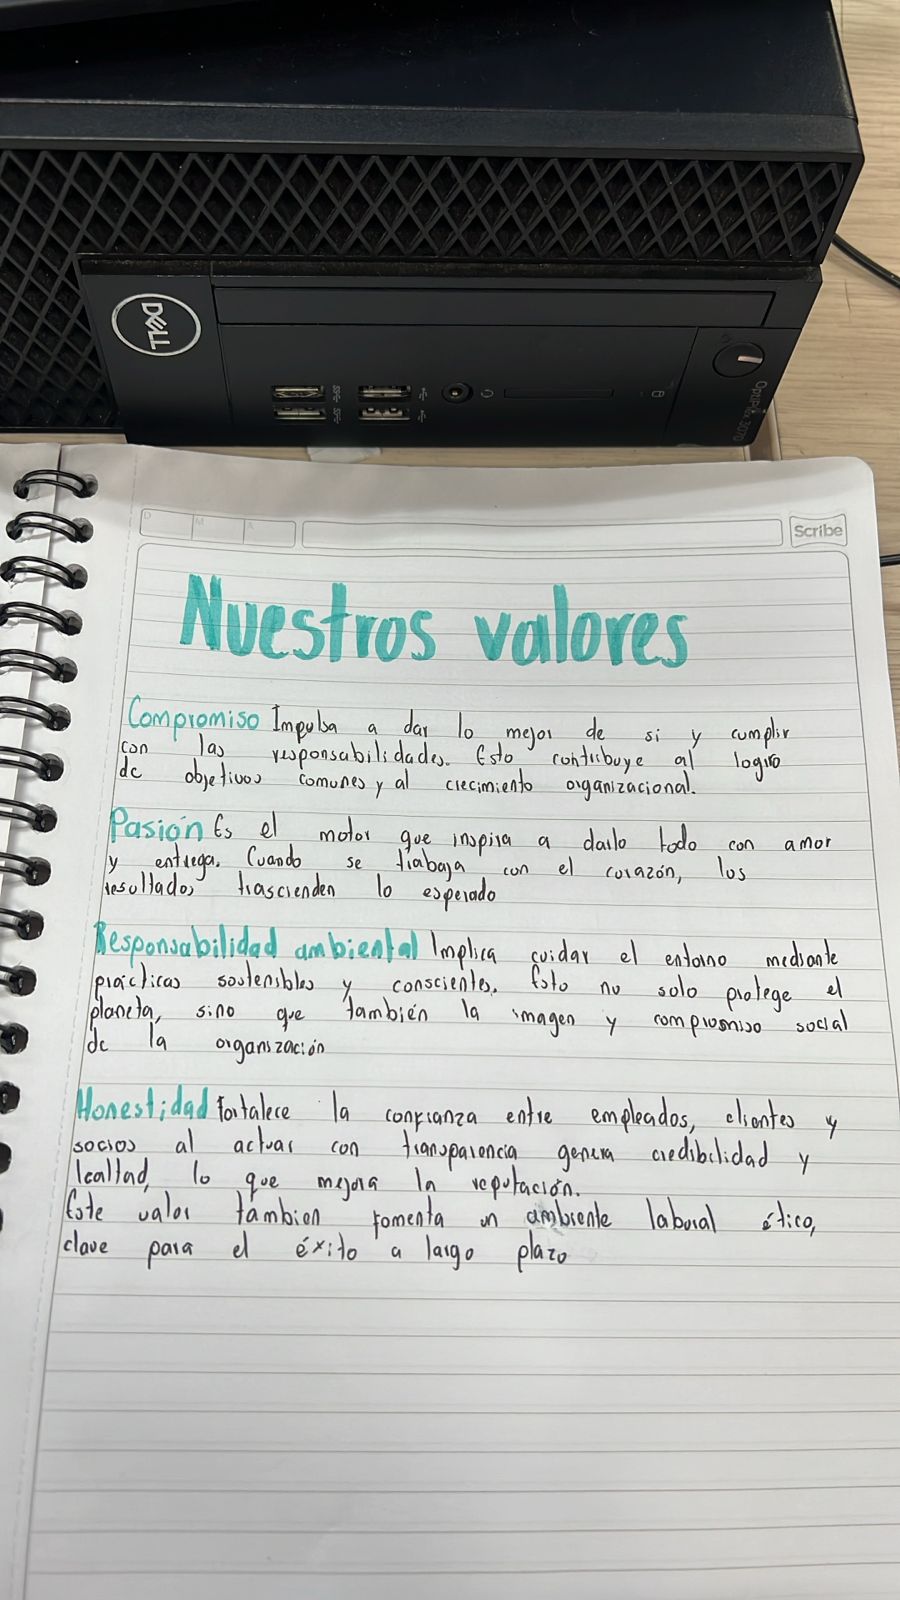 DELL
OptiPlex 3070
D M A
Scribe
Nuestros valores
Compromiso Impulsa a dar lo mejor de si y cumplir
con las responsabilidades. Esto contribuye al logro
de objetivos comunes y al crecimiento organizacional.
Pasión Es el motor que inspira a darlo todo con amor
y entrega. Cuando se trabaja con el corazón, los
resultados trascienden lo esperado
Responsabilidad ambiental Implica cuidar el entorno mediante
prácticas sostenibles y conscientes. Esto no solo protege el
planeta, sino que también la imagen y compromiso social
de la organización
Honestidad Fortalece la confianza entre empleados, clientes y
socios al actuar con transparencia genera credibilidad y
lealtad, lo que mejora la reputación.
Este valor tambien fomenta un ambiente laboral ético,
clave para el éxito a largo plazo